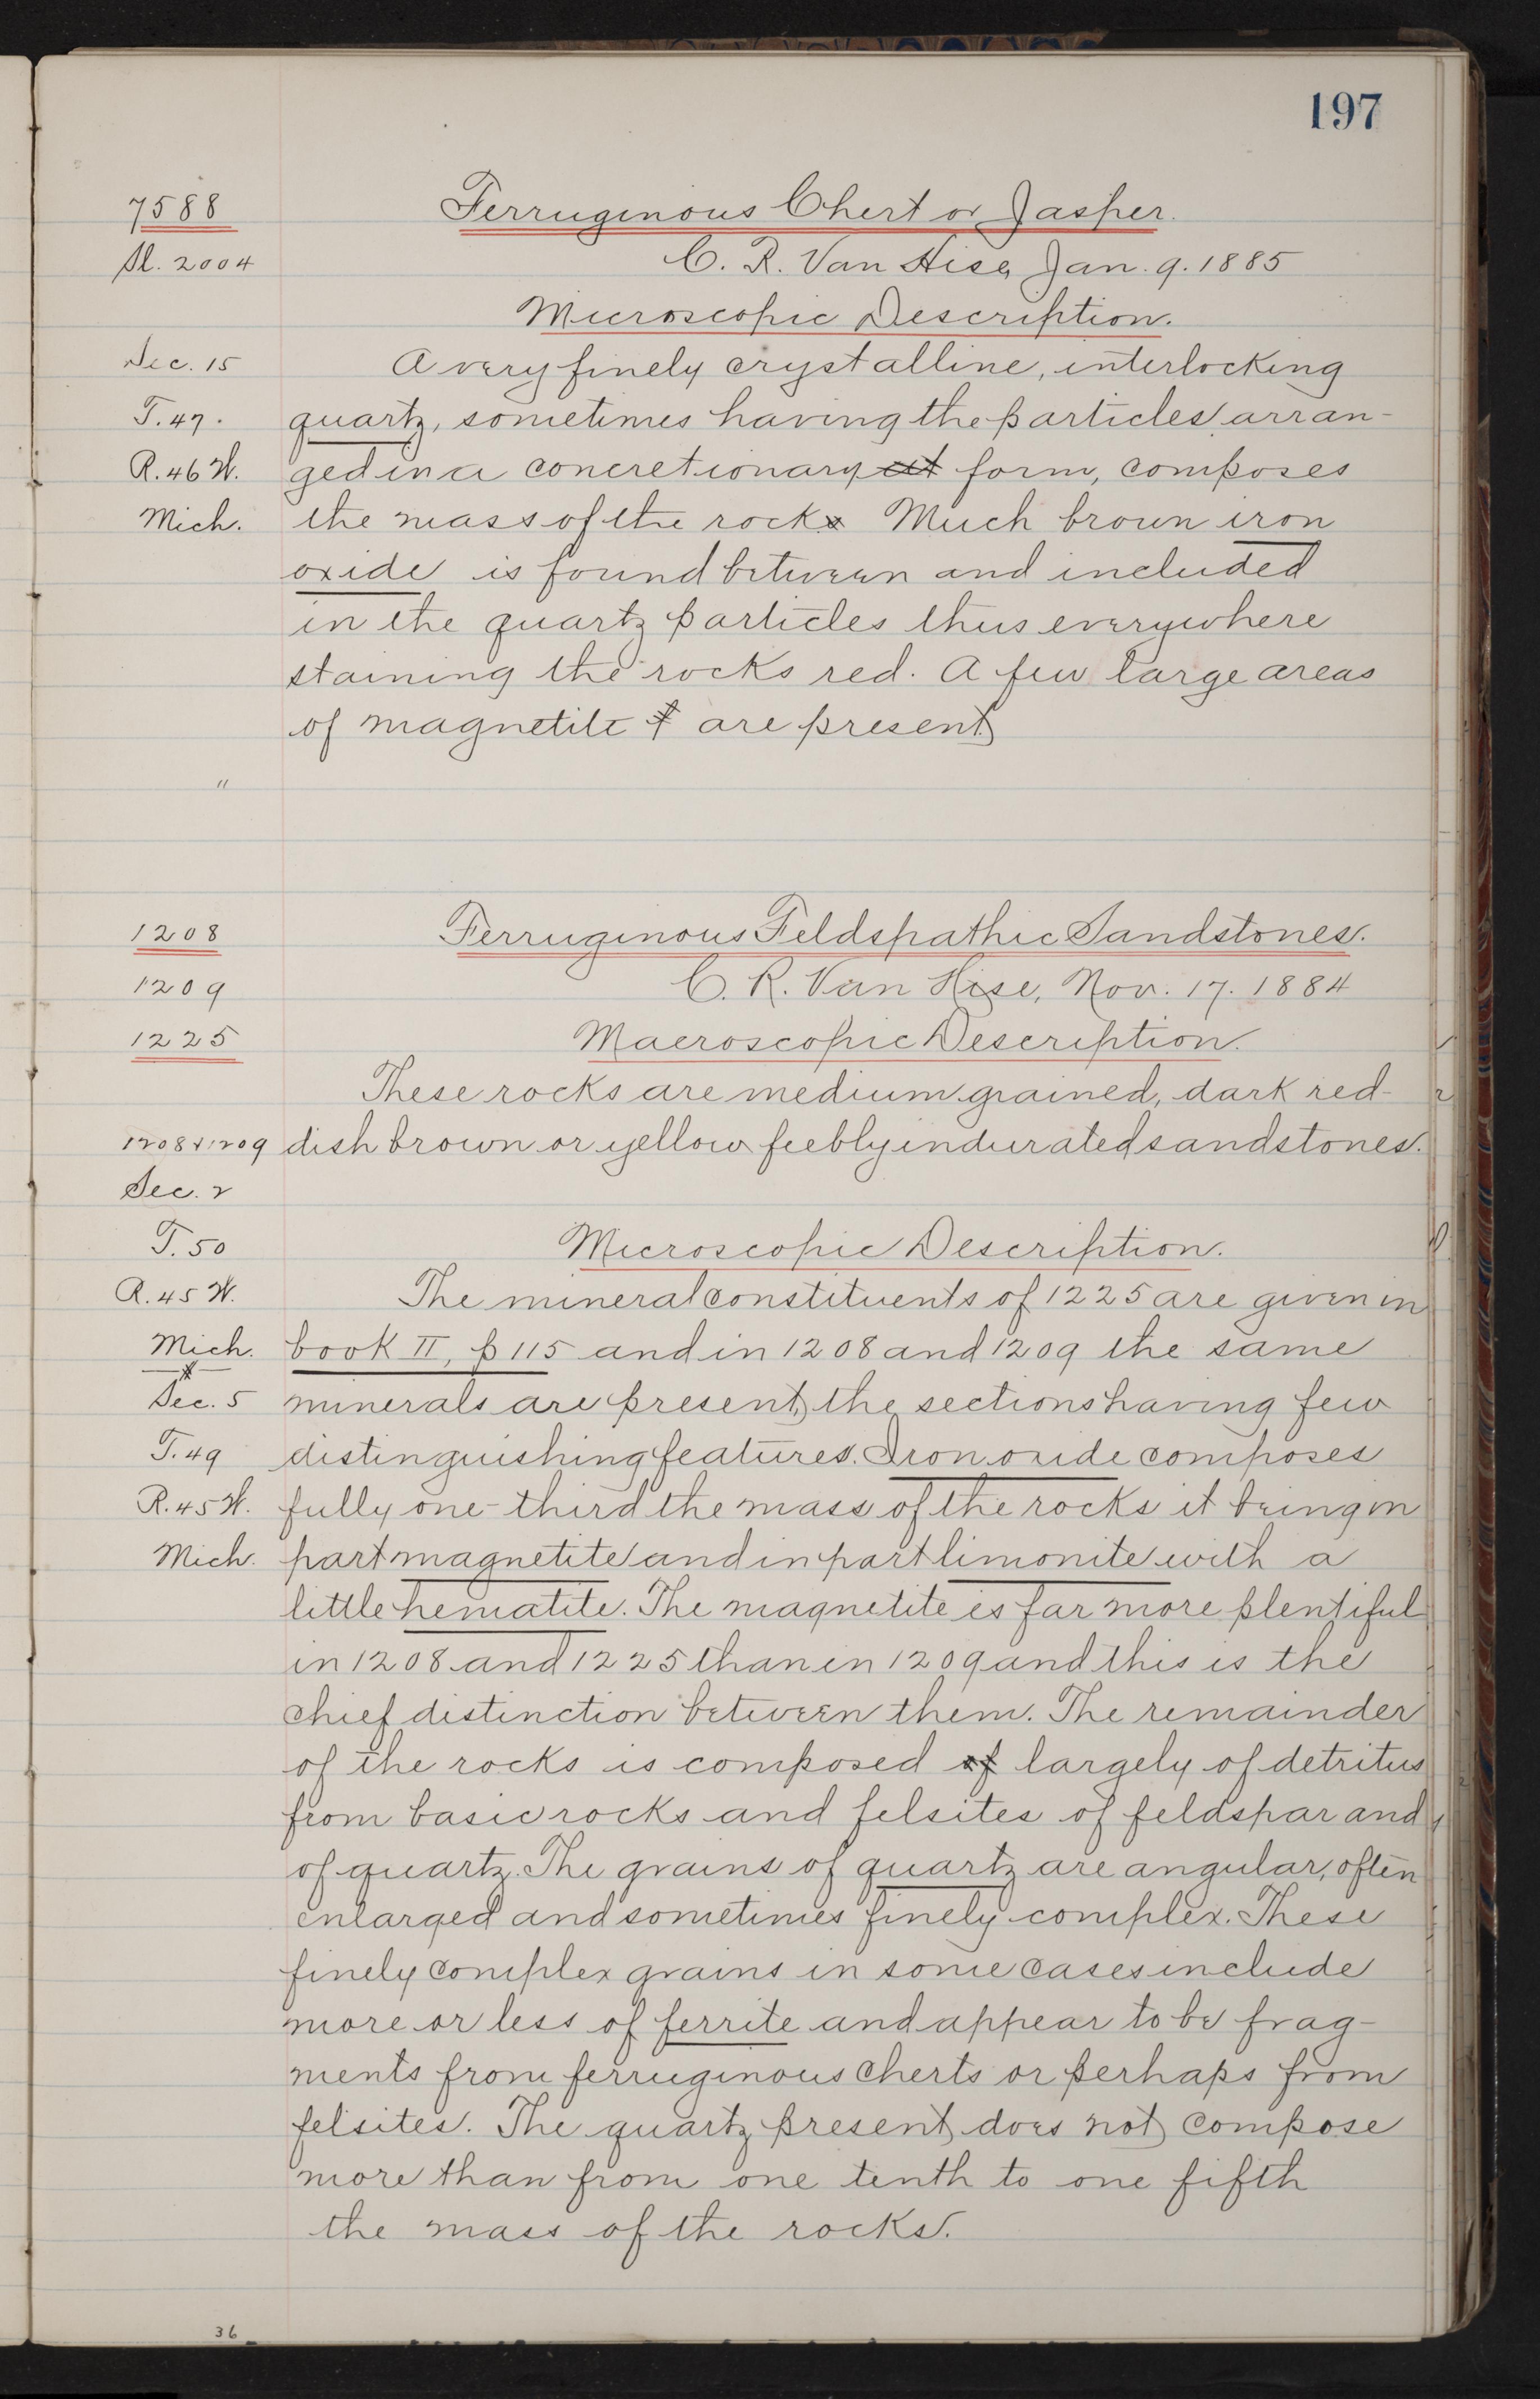 197
7588 Ferruginous Chert or Jasper.
Sl. 2004 C. R. Van Hise, Jan. 9. 1885
Microscopic Description.
Sec. 15 A very finely crystalline, interlocking
T. 47. quartz, sometimes having the particles arran-
R. 46 W. ged in a concretionary form, composes
Mich. the mass of the rock. Much brown iron
oxide is found between and included
in the quartz particles thus everywhere
staining the rocks red. A few large areas
of magnetite are present.
"
1208 Ferruginous Feldspathic Sandstones.
1209 C. R. Van Hise, Nov. 17. 1884
1225 Macroscopic Description.
These rocks are medium grained, dark red-
1208 & 1209 dish brown or yellow feebly indurated sandstones.
Sec. 2
T. 50 Microscopic Description.
R. 45 W. The mineral constituents of 1225 are given in
Mich. book II, p 115 and in 1208 and 1209 the same
Sec. 5 minerals are present, the sections having few
T. 49 distinguishing features. Iron oxide composes
R. 45 W. fully one-third the mass of the rocks it being in
Mich. part magnetite and in part limonite with a
little hematite. The magnetite is far more plentiful
in 1208 and 1225 than in 1209 and this is the
chief distinction between them. The remainder
of the rocks is composed of largely of detritus
from basic rocks and felsites of feldspar and
of quartz. The grains of quartz are angular, often
enlarged and sometimes finely complex. These
finely complex grains in some cases include
more or less of ferrite and appear to be frag-
ments from ferruginous cherts or perhaps from
felsites. The quartz present does not compose
more than from one tenth to one fifth
the mass of the rocks.
36